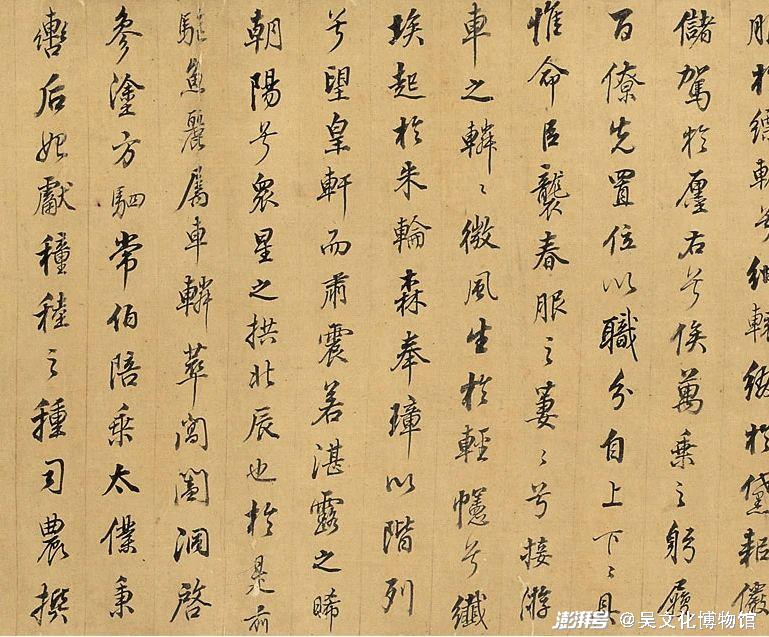 服於縹軛兮紺轅綴於黛耜儼
儲駕於廛右兮俟萬乘之躬履
百僚先置位以職分自上下〻具
惟命臣襲春服之萋〻兮接游
車之轔〻微風生於輕幰兮纖
埃起於朱輪森奉璋以階列
兮望皇軒而肅震若湛露之晞
朝陽兮眾星之拱北辰也於是前
驅魚麗屬車轔萃閶闔洞啓
參塗方駟常伯陪乘太僕秉
轡后妃獻穜稑之種司農撰
澎湃号 @吴文化博物馆